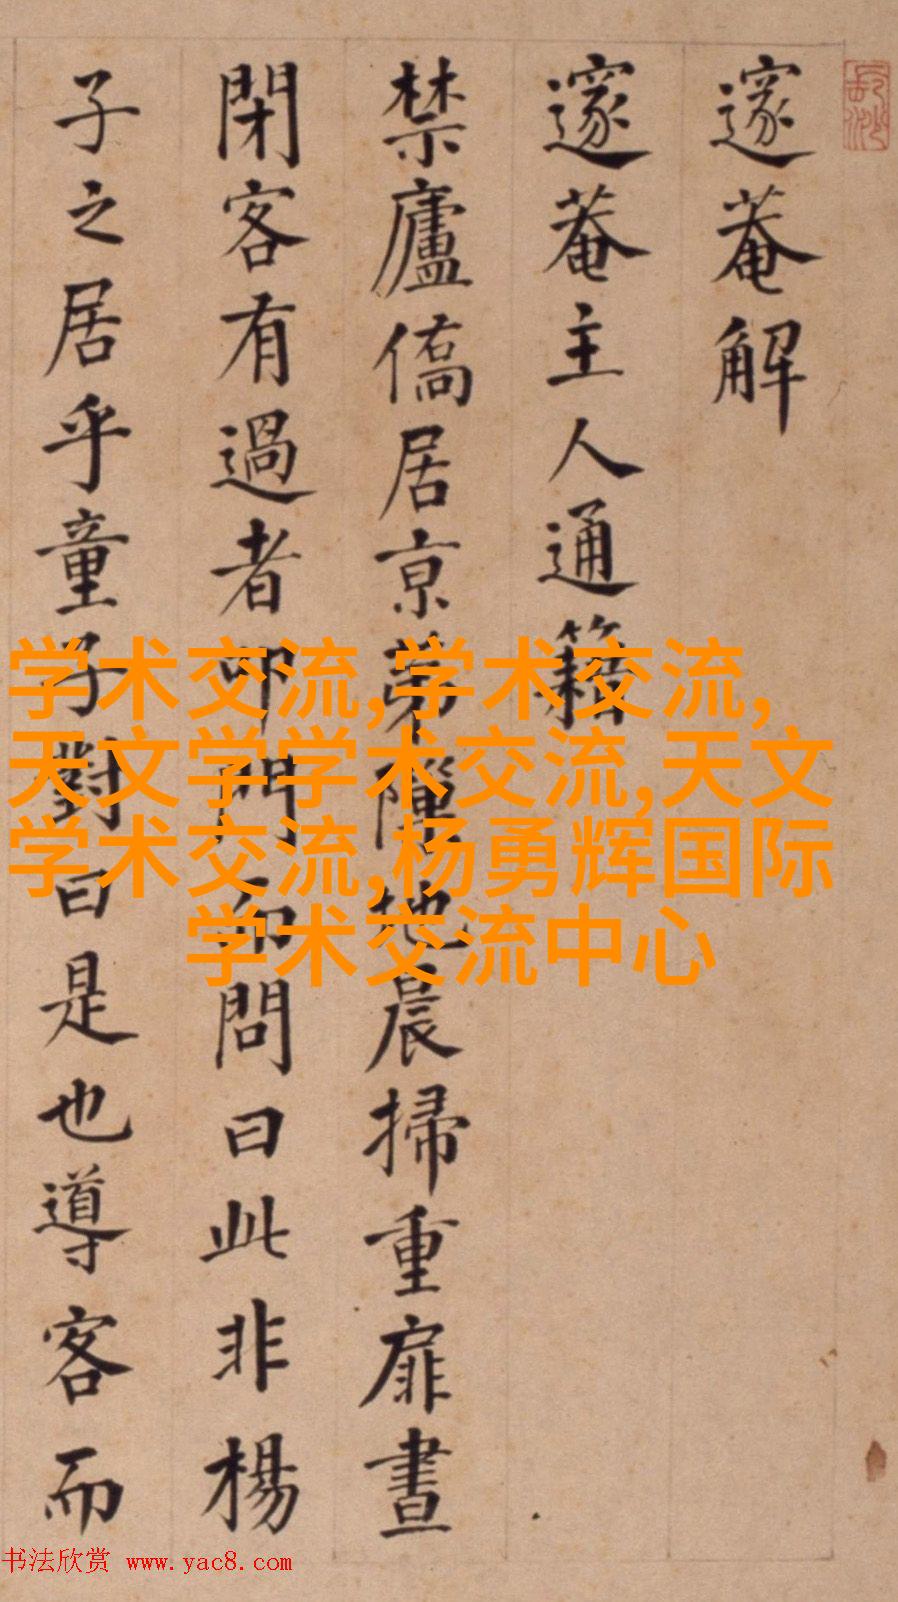 邃菴解
邃菴主人通籍
禁廬僑居京第隙地晨掃重扉晝
閉客有過者叩門而問曰此非楊
子之居乎童子對曰是也導客而
学术交流,学术交流,
天文学学术交流,天文
学术交流,杨勇辉国际
学术交流中心
书法欣赏 www.yac8.com